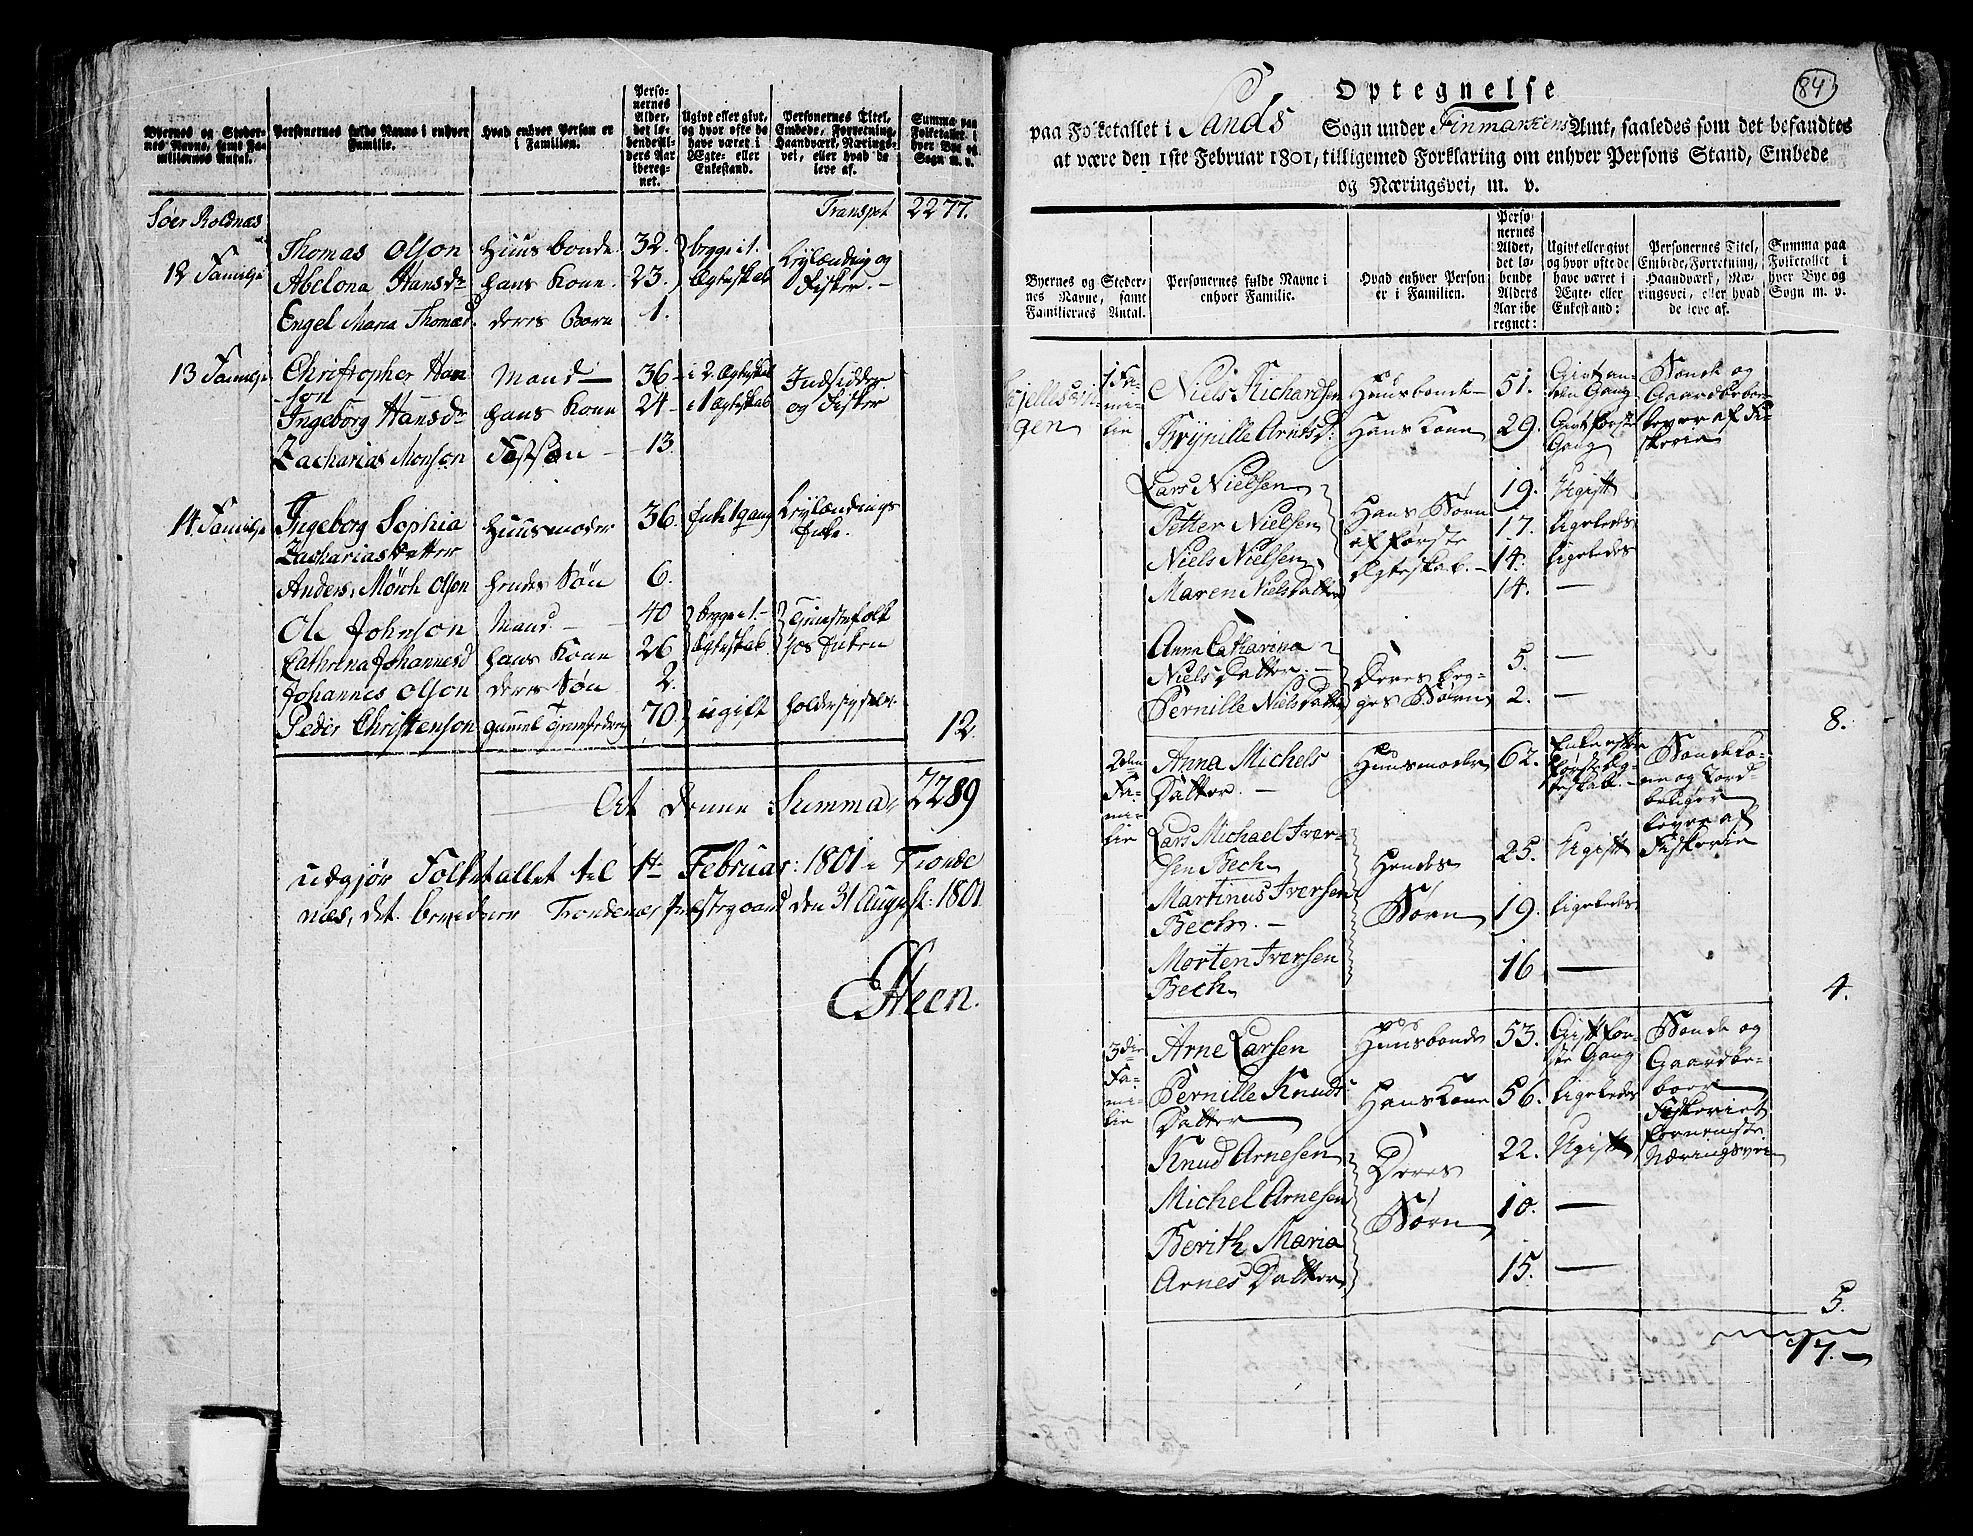 Byernes og Steder-
nes Navne, samt Fa-
miliernes Antal.
Personernes fulde Navne i enhver
Familie.
Hvad enhver Person er
i Familien.
Perso-
nernes
Alder,
det lø-
bende Al-
ders Aar
ibereg-
net.
Ugivt eller givt,
og hvor ofte de
have været i
Ægte- eller
Enkestand.
Personernes Titel,
Embede, Forretning,
Haandværk, Nærings-
vei, eller hvad de
leve af.
Summa paa
Folketallet i
hver Bye og
Sogn m. v.
Soer Roldnæs
Transpt 2277.
12 Familje
Thomas Olson Huusbonde 32. begge i 1. Leylænding og
Abelona Hansdr hans Kone 23. Ægteskab Fisker. —
Engel Maria Thomasd. deres Barn 1.
13 Familje
Christopher Han
son Mand — 36 — i 2. Ægteskab Indsidder
Ingeborg Hansdr hans Kone 24 — i 1 Ægteskab og Fisker
Zacharias Monson Fostsøn — 13.
14 Familje
Ingeborg Sophia
Zachariasdatter Huusmoder 36. Enke 1 gang Leylændings
Enke.
Anders Mørch Olson hendes Søn 6.
Ole Johnson Mand. — 40 begge i 1 — Tienestefolk
Cathrina Johannesd hans Kone 26 Ægteskab hos Enken
Johannes Olson deres Søn 2.
Peder Christenson gammel Tienestedreng 70. ugift
12.
At denne Summa 2289
udgjør Folketallet til 1te Februar: 1801 i Tronde
næs, det bevidner Trondenæs Præstegaard den 31 August: 1801
Steen.
84
Optegnelse
paa Folketallet i Sands Sogn under Finmarkens Amt, saaledes som det befandtes
at være den 1ste Februar 1801, tilligemed Forklaring om enhver Persons Stand, Embede
og Næringsvei, m. v.
Byernes og Steder-
nes Navne, samt
Familiernes Antal.
Personernes fulde Navne i
enhver Familie.
Hvad enhver Person
er i Familien.
Perso-
nernes
Alder,
det lø-
bende
Alders
Aar ibe
regnet:
Ugivt eller givt
og hvor ofte de
have været i
Ægte- eller
Enkestand:
Personernes Titel,
Embede, Forretning,
Haandværk, Næ-
ringsvei, eller hvad
de leve af.
Summa paa
Folketallet i
hver Bye og
Sogn m. v.
Kjellesvin-
gen
1 Fa-
mi-
lie
Niels Richardsen Huusbonde — 51. Givt an-
den Gang Bonde og
Gaardbeboer
lever af Fi-
skerie
Pernille Arnesd: Hans Kone 29. Givt første
Gang
Lars Nielsen 19. Ugift
Petter Nielsen Hans Børn 17. ligeledes
Niels Nielsen af første 14. ligeledes
Maren Nielsdatter Ægteskab. — 14. —
Anna Catharina
Niels Datter. — Deres beg- 5. —
Pernille Niels Datter ges Børn 2. —
8.
2den
Fa-
mi-
lie
Anna Michels
Datter. — Huusmoder 62. Enke efter
første Æg-
teskab. — Bondeko-
ne og Jord-
bruger
lever af
Fiskerie
Lars Michael Iver-
sen Bech 25. Ugift
Martinus Iversen
Bech. — Hendes
Børn 19. ligeledes
Morten Iversen
Bech 16 —
4.
3die
Fa-
mi-
lie
Arne Larsen Huusbonde 53. Gift før-
ste Gang Bonde og
Gaardbe-
boer
Fiskeriet
fornemste
Næringsvei
Pernille Knuds
Datter Hans Kone 56. ligeledes
Knud Arnesen Deres 22. Ugift
Michel Arnesen Børn 10. —
Berith Maria
Arnes Datter 15. —
5.
17. —